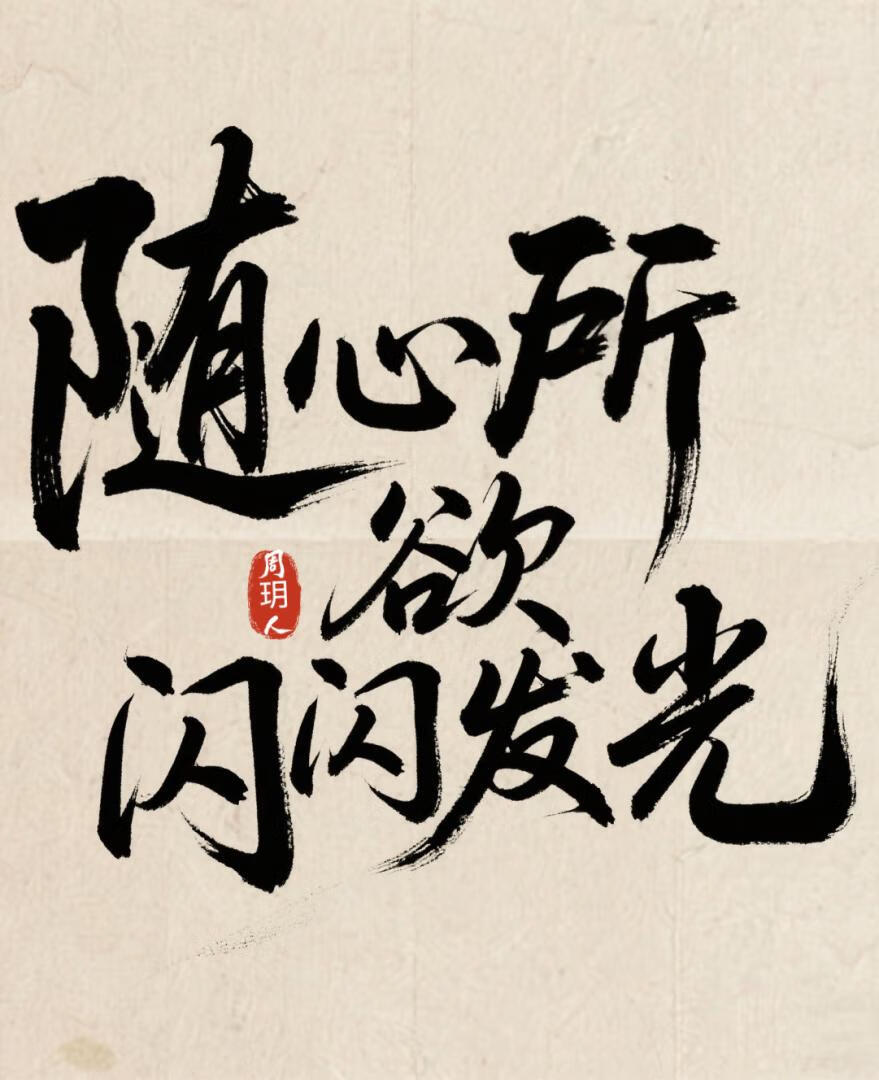 随心所
欲
周玥人
闪闪发光